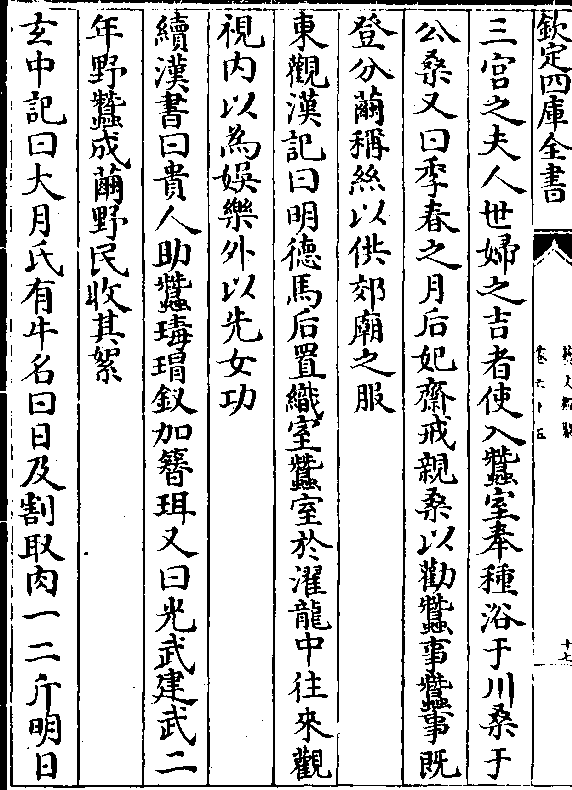 欽定四庫全書
藝文類聚
卷六十五
十七
三宮之夫人世婦之吉者使入蠶室奉種浴于川桑于
公桑又曰季春之月后妃齋戒親桑以勸蠶事蠶事既
登分繭稱絲以供郊廟之服
東觀漢記曰明德馬后置織室蠶室於濯龍中往來觀
視内以為娛樂外以先女功
續漢書曰貴人助蠶瑇瑁釵加簪珥又曰光武建武二
年野蠶成繭野民收其絮
玄中記曰大月氏有牛名曰日及割取肉一二斤明日